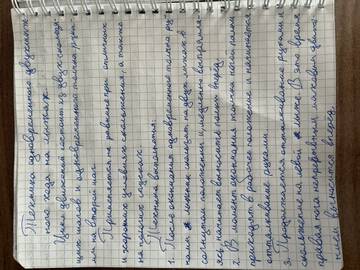 Техника одновременного двухшаж-
ного хода на лыжах.
Цикл движений состоит из двух скользя-
щих шагов и одновременного толчка рука-
ми на второй шаг.
Применяется на равнине при отличных
и хороших условиях скольжения, а также
на пологих спусках.
Техника выполнения.
1. После окончания одновременного толчка ру-
ками лыжник скользит на двух лыжах в
согнутом положении и, медленно выпрямля-
ясь, начинает выносить палки вперёд.
2. В момент окончания толчка ногой палки
приходят в рабочее положение и начинается
отталкивание руками.
3. Продолжается отталкивание руками и
скольжение на левой лыже. В это время
правая нога непрерывным маховым движе-
нием выносится вперёд.